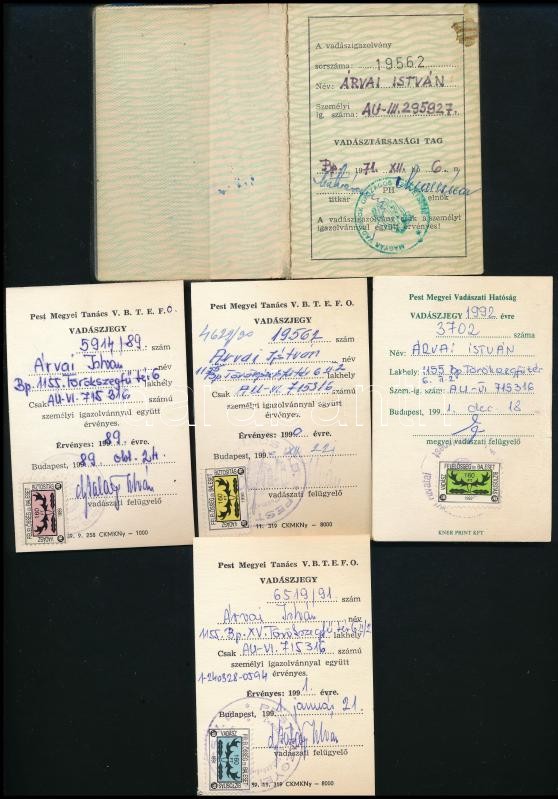 A vadászigazolvány
sorszáma: 19562
Név: ÁRVAI ISTVÁN
Személyi
ig. száma: AU-III.295927.
VADÁSZTÁRSASÁGI TAG
Bp. 1971. XII. hó 6. n.
titkár PH elnök
A vadászigazolvány csak a személyi
igazolvánnyal együtt érvényes!
Pest Megyei Tanács V. B. T. E. F. O.
VADÁSZJEGY
5914/89 szám
Árvai István név
Bp. 1155. Törökszegfű tér 6 lakhely
Csak AU-VI. 715 316 számú
személyi igazolvánnyal együtt
érvényes.
Érvényes: 199 89 évre.
Budapest, 199 89 okt. 24
vadászati felügyelő
VADÁSZ
FELELŐSSÉG ÉS BALESET
BIZTOSÍTÁS
160
59. 9. 258 CKMKNy — 1000
Pest Megyei Tanács V. B. T. E. F. O.
VADÁSZJEGY
4622/90 19562 szám
Árvai István név
1155 Bp. Törökszegfű tér 6 4/2 lakhely
Csak AU-VI. 715316 számú
személyi igazolvánnyal együtt
érvényes.
Érvényes: 1990 évre.
Budapest, 199
vadászati felügyelő
VADÁSZ
FELELŐSSÉG ÉS BALESET
BIZTOSÍTÁS
160
11. 319 CKMKNy — 8000
Pest Megyei Vadászati Hatóság
VADÁSZJEGY 1992 évre
3702 száma
Név: ÁRVAI ISTVÁN
Lakhely: 1155 Bp Törökszegfű tér
Szem.ig. szám: AU-VI 715316
Budapest, 1991 dec 18
megyei vadászati felügyelő
VADÁSZ
FELELŐSSÉG ÉS BALESET
160
KNER PRINT KFT
Pest Megyei Tanács V. B. T. E. F. O.
VADÁSZJEGY
6519/91 szám
Árvai István név
1155. Bp. XV. Törökszegfű tér 6 4/2 lakhely
Csak AU-VI. 715316 számú
személyi igazolvánnyal együtt
1-240328-0594 érvényes.
Érvényes: 1991 évre.
Budapest, 1991 január 21.
vadászati felügyelő
VADÁSZ
FELELŐSSÉG ÉS BALESET
BIZTOSÍTÁS
160
59. 11. 319 CKMKNy — 8000